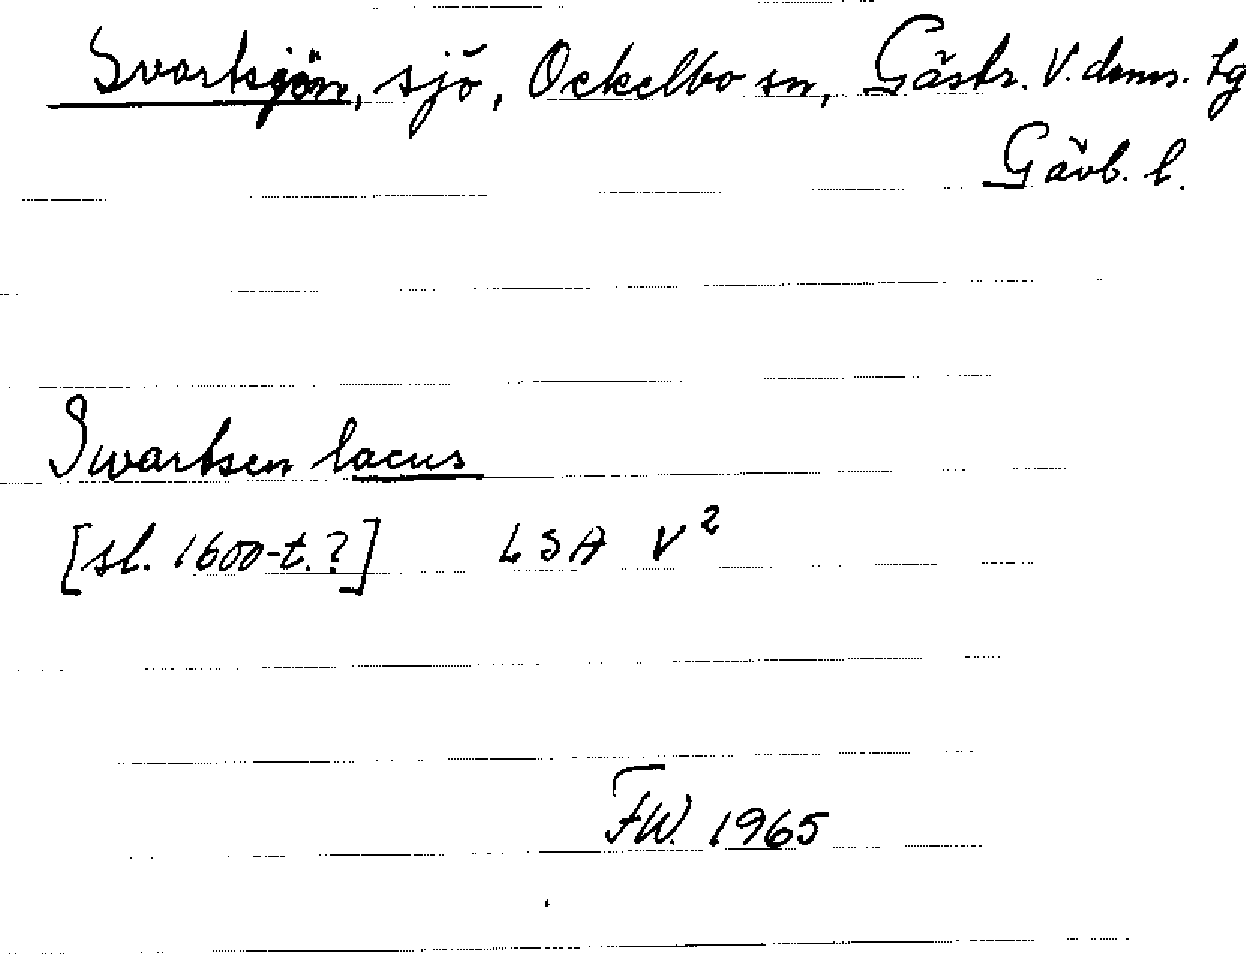 Svartsjön, sjö, Ockelbo sn, Gästr. V. doms. tg
Gävb. l.
Swartsen lacus
[sl. 1600-t.?] LSA V²
FW. 1965